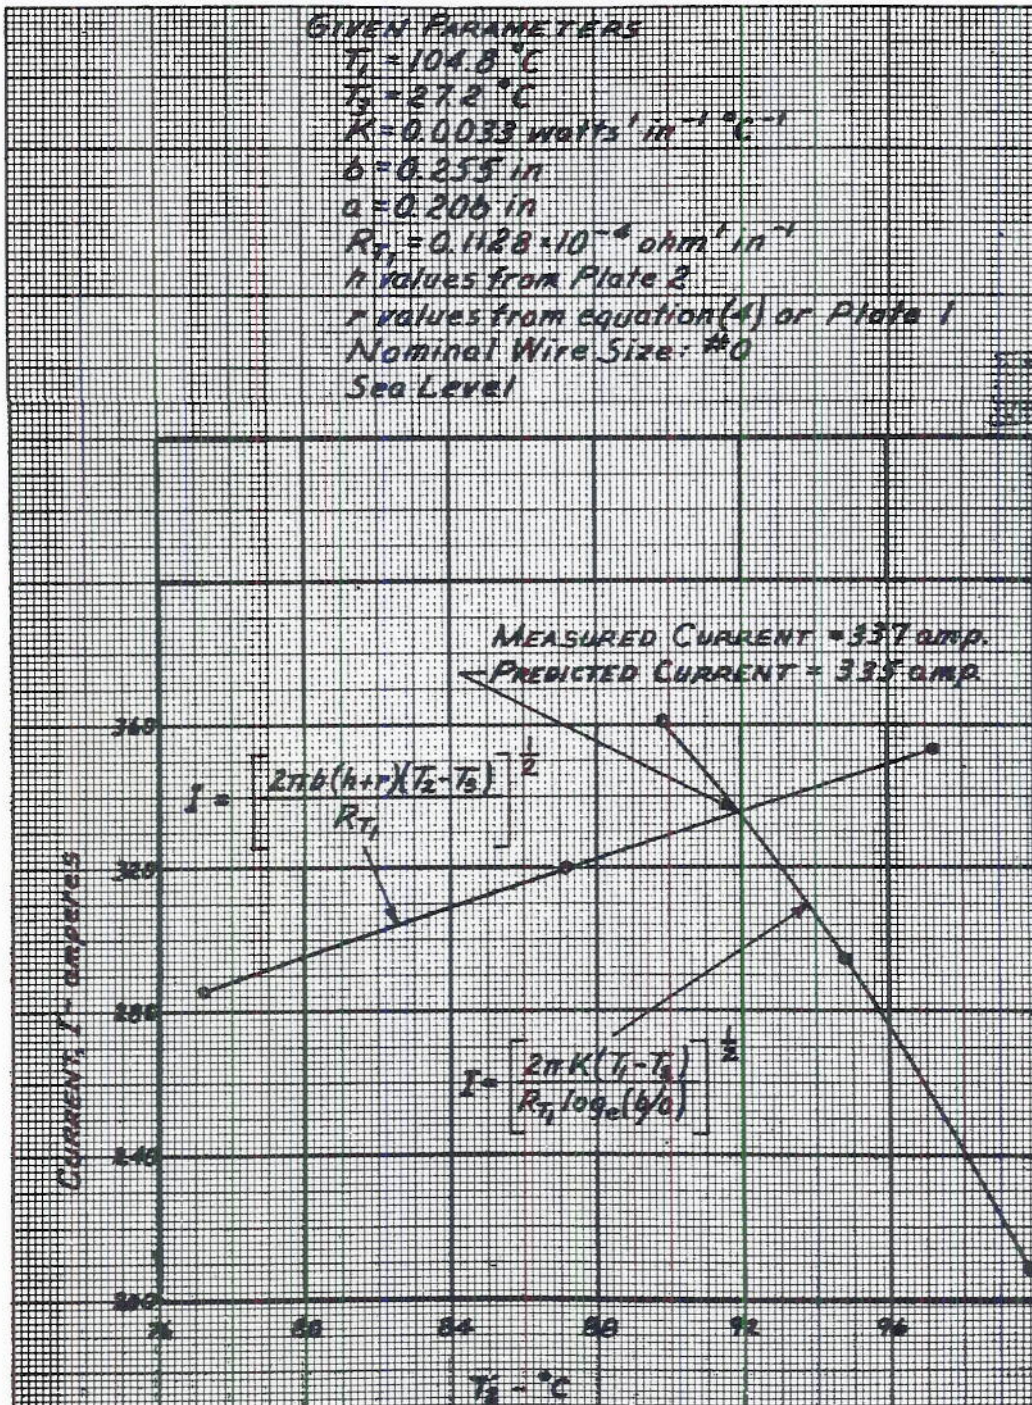 GIVEN PARAMETERS
T₁ = 104.8 °C
T₃ = 27.2 °C
K = 0.0033 watts¹ in⁻¹ °C⁻¹
b = 0.255 in
a = 0.206 in
R_T₁ = 0.1128×10⁻⁴ ohm¹ in⁻¹
h values from Plate 2
r values from equation (4) or Plate 1
Nominal Wire Size: #0
Sea Level
MEASURED CURRENT = 337 amp.
PREDICTED CURRENT = 335 amp.
I = [2πb(h+r)(T₂-T₃) / R_T₁]^½
I = [2πK(T₁-T₂) / R_T₁ logₑ(b/a)]^½
CURRENT, I ~ amperes
360
320
280
240
200
76 80 84 88 92 96
T₂ - °C